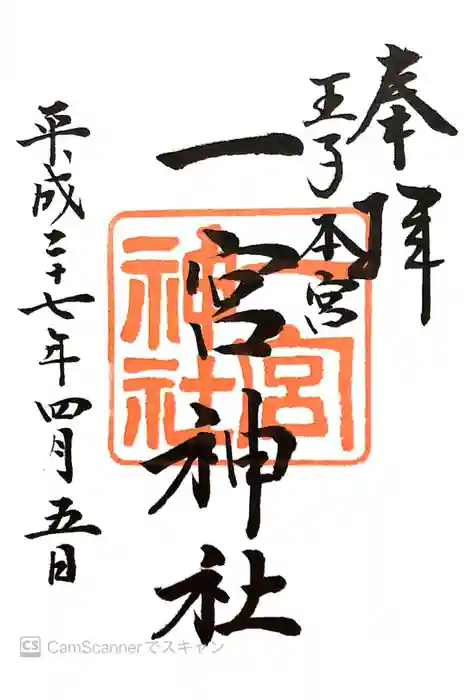 奉拝
王子本宮
一宮神社
一宮
神社
平成二十七年四月五日
CS CamScannerでスキャン